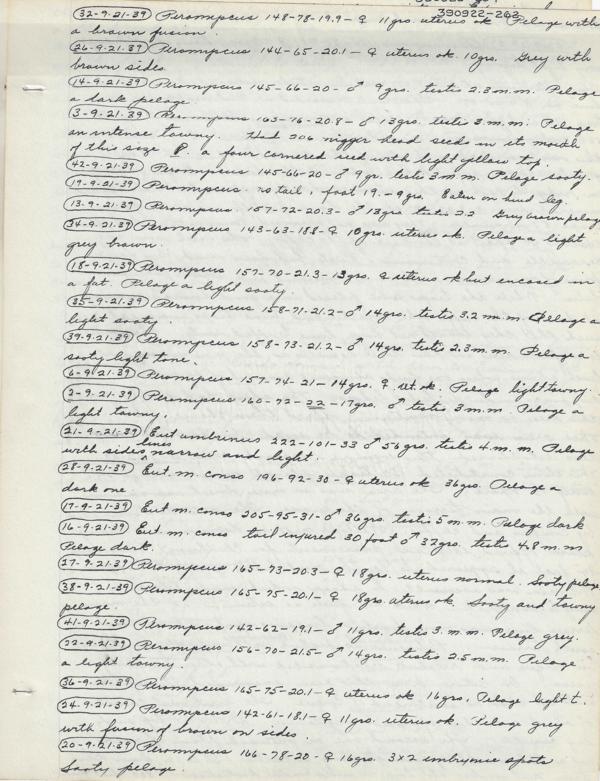 390922-262
(32-9-21-39) Peromyscus 148-78-19.9-♀ 11grs. uterus ok Pelage with
a brown fusion.
(26-9-21-39) Peromyscus 144-65-20.1-♀ uterus ok. 10grs. Grey with
brown sides
(14-9-21-39) Peromyscus 145-66-20-♂ 9grs. testis 2.3 m.m. Pelage
a dark pelage
(3-9-21-39) Peromyscus 163-76-20.8-♂ 13grs. testis 3 m.m. Pelage
an intense towny. Had 206 nigger head seeds in its mouth
of this size a four cornered seed with light yellow top.
(42-9-21-39) Peromyscus 145-66-20-♂ 9gr. testis 3 m.m. Pelage sooty.
(19-9-21-39) Peromyscus. no tail, foot 19.-9grs. Eaten on hind leg.
(13-9-21-39) Peromyscus. 157-72-20.3-♂ 13grs testis 2.2 Grey brown pelage
(34-9-21-39) Peromyscus 143-63-18.8-♀ 10grs. uterus ok. Pelage a light
grey brown.
(18-9-21-39) Peromyscus 157-70-21.3-13grs. ♀ uterus ok but encased in
a fat. Pelage a light sooty.
(35-9-21-39) Peromyscus 158-71-21.2-♂ 14grs. testis 3.2 m.m. Pelage a
light sooty.
(39-9-21-39) Peromyscus 158-73-21.2-♂ 14grs. testis 2.3 m.m. Pelage a
sooty light tone.
(6-9-21-39) Peromyscus 157-74-21-14grs. ♀ ut. ok. Pelage light towny.
(2-9-21-39) Peromyscus 160-72-22-17grs. ♂ testis 3 m.m. Pelage a
light towny.
(21-9-21-39) Eut umbrinus 222-101-33 ♂ 56grs. testis 4. m.m. Pelage
with side lines narrow and light.
(28-9-21-39) Eut. m. conso 196-92-30-♀ uterus ok 36grs. Pelage a
dark one
(17-9-21-39) Eut m. conso 205-95-31-♂ 36grs. testis 5 m.m. Pelage dark
(16-9-21-39) Eut. m. conso tail injured 30 foot ♂ 32grs. testis 4.8 m.m
Pelage dark.
(27-9-21-39) Peromyscus 165-73-20.3-♀ 18grs. uterus normal. Sooty pelage
(38-9-21-39) Peromyscus 165-75-20.1-♀ 18grs. uterus ok. Sooty and towny
pelage.
(41-9-21-39) Peromyscus 142-62-19.1-♂ 11grs. testis 3. m.m. Pelage grey.
(22-9-21-39) Peromyscus 156-70-21.5-♂ 14grs. testis 2.5 m.m. Pelage
a light towny.
(36-9-21-39) Peromyscus 165-75-20.1-♀ uterus ok 16grs. Pelage light t.
(24-9-21-39) Peromyscus 142-61-18.1-♀ 11grs. uterus ok. Pelage grey
with fusion of brown on sides.
(20-9-21-39) Peromyscus 166-78-20-♀ 16grs. 3x2 embryonic spots
Sooty pelage.